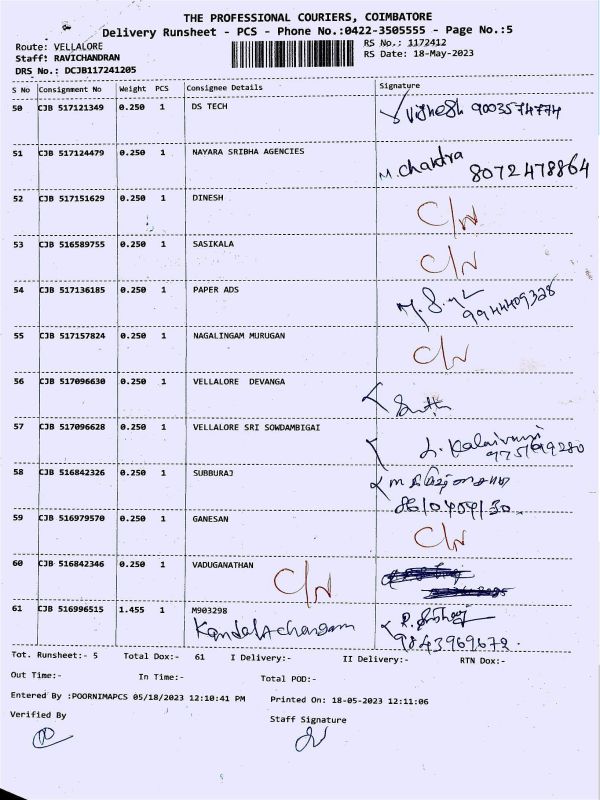 THE PROFESSIONAL COURIERS, COIMBATORE
Delivery Runsheet - PCS - Phone No.:0422-3505555 - Page No.:5
Route: VELLALORE RS No.: 1172412
Staff: RAVICHANDRAN RS Date: 18-May-2023
DRS No.: DCJB117241205
S No Consignment No Weight PCS Consignee Details Signature
50 CJB 517121349 0.250 1 DS TECH Vignesh 9003574774
51 CJB 517124479 0.250 1 NAYARA SRIBHA AGENCIES M. Chandra 8072478864
52 CJB 517151629 0.250 1 DINESH C/N
53 CJB 516589755 0.250 1 SASIKALA C/N
54 CJB 517136185 0.250 1 PAPER ADS 9944409328
55 CJB 517157824 0.250 1 NAGALINGAM MURUGAN C/N
56 CJB 517096630 0.250 1 VELLALORE DEVANGA
57 CJB 517096628 0.250 1 VELLALORE SRI SOWDAMBIGAI
58 CJB 516842326 0.250 1 SUBBURAJ
59 CJB 516979570 0.250 1 GANESAN C/N
60 CJB 516842346 0.250 1 VADUGANATHAN C/N
61 CJB 516996515 1.455 1 M903298
9843969672.
Tot. Runsheet:- 5 Total Dox:- 61 I Delivery:- II Delivery:- RTN Dox:-
Out Time:- In Time:- Total POD:-
Entered By :POORNIMAPCS 05/18/2023 12:10:41 PM Printed On: 18-05-2023 12:11:06
Verified By Staff Signature